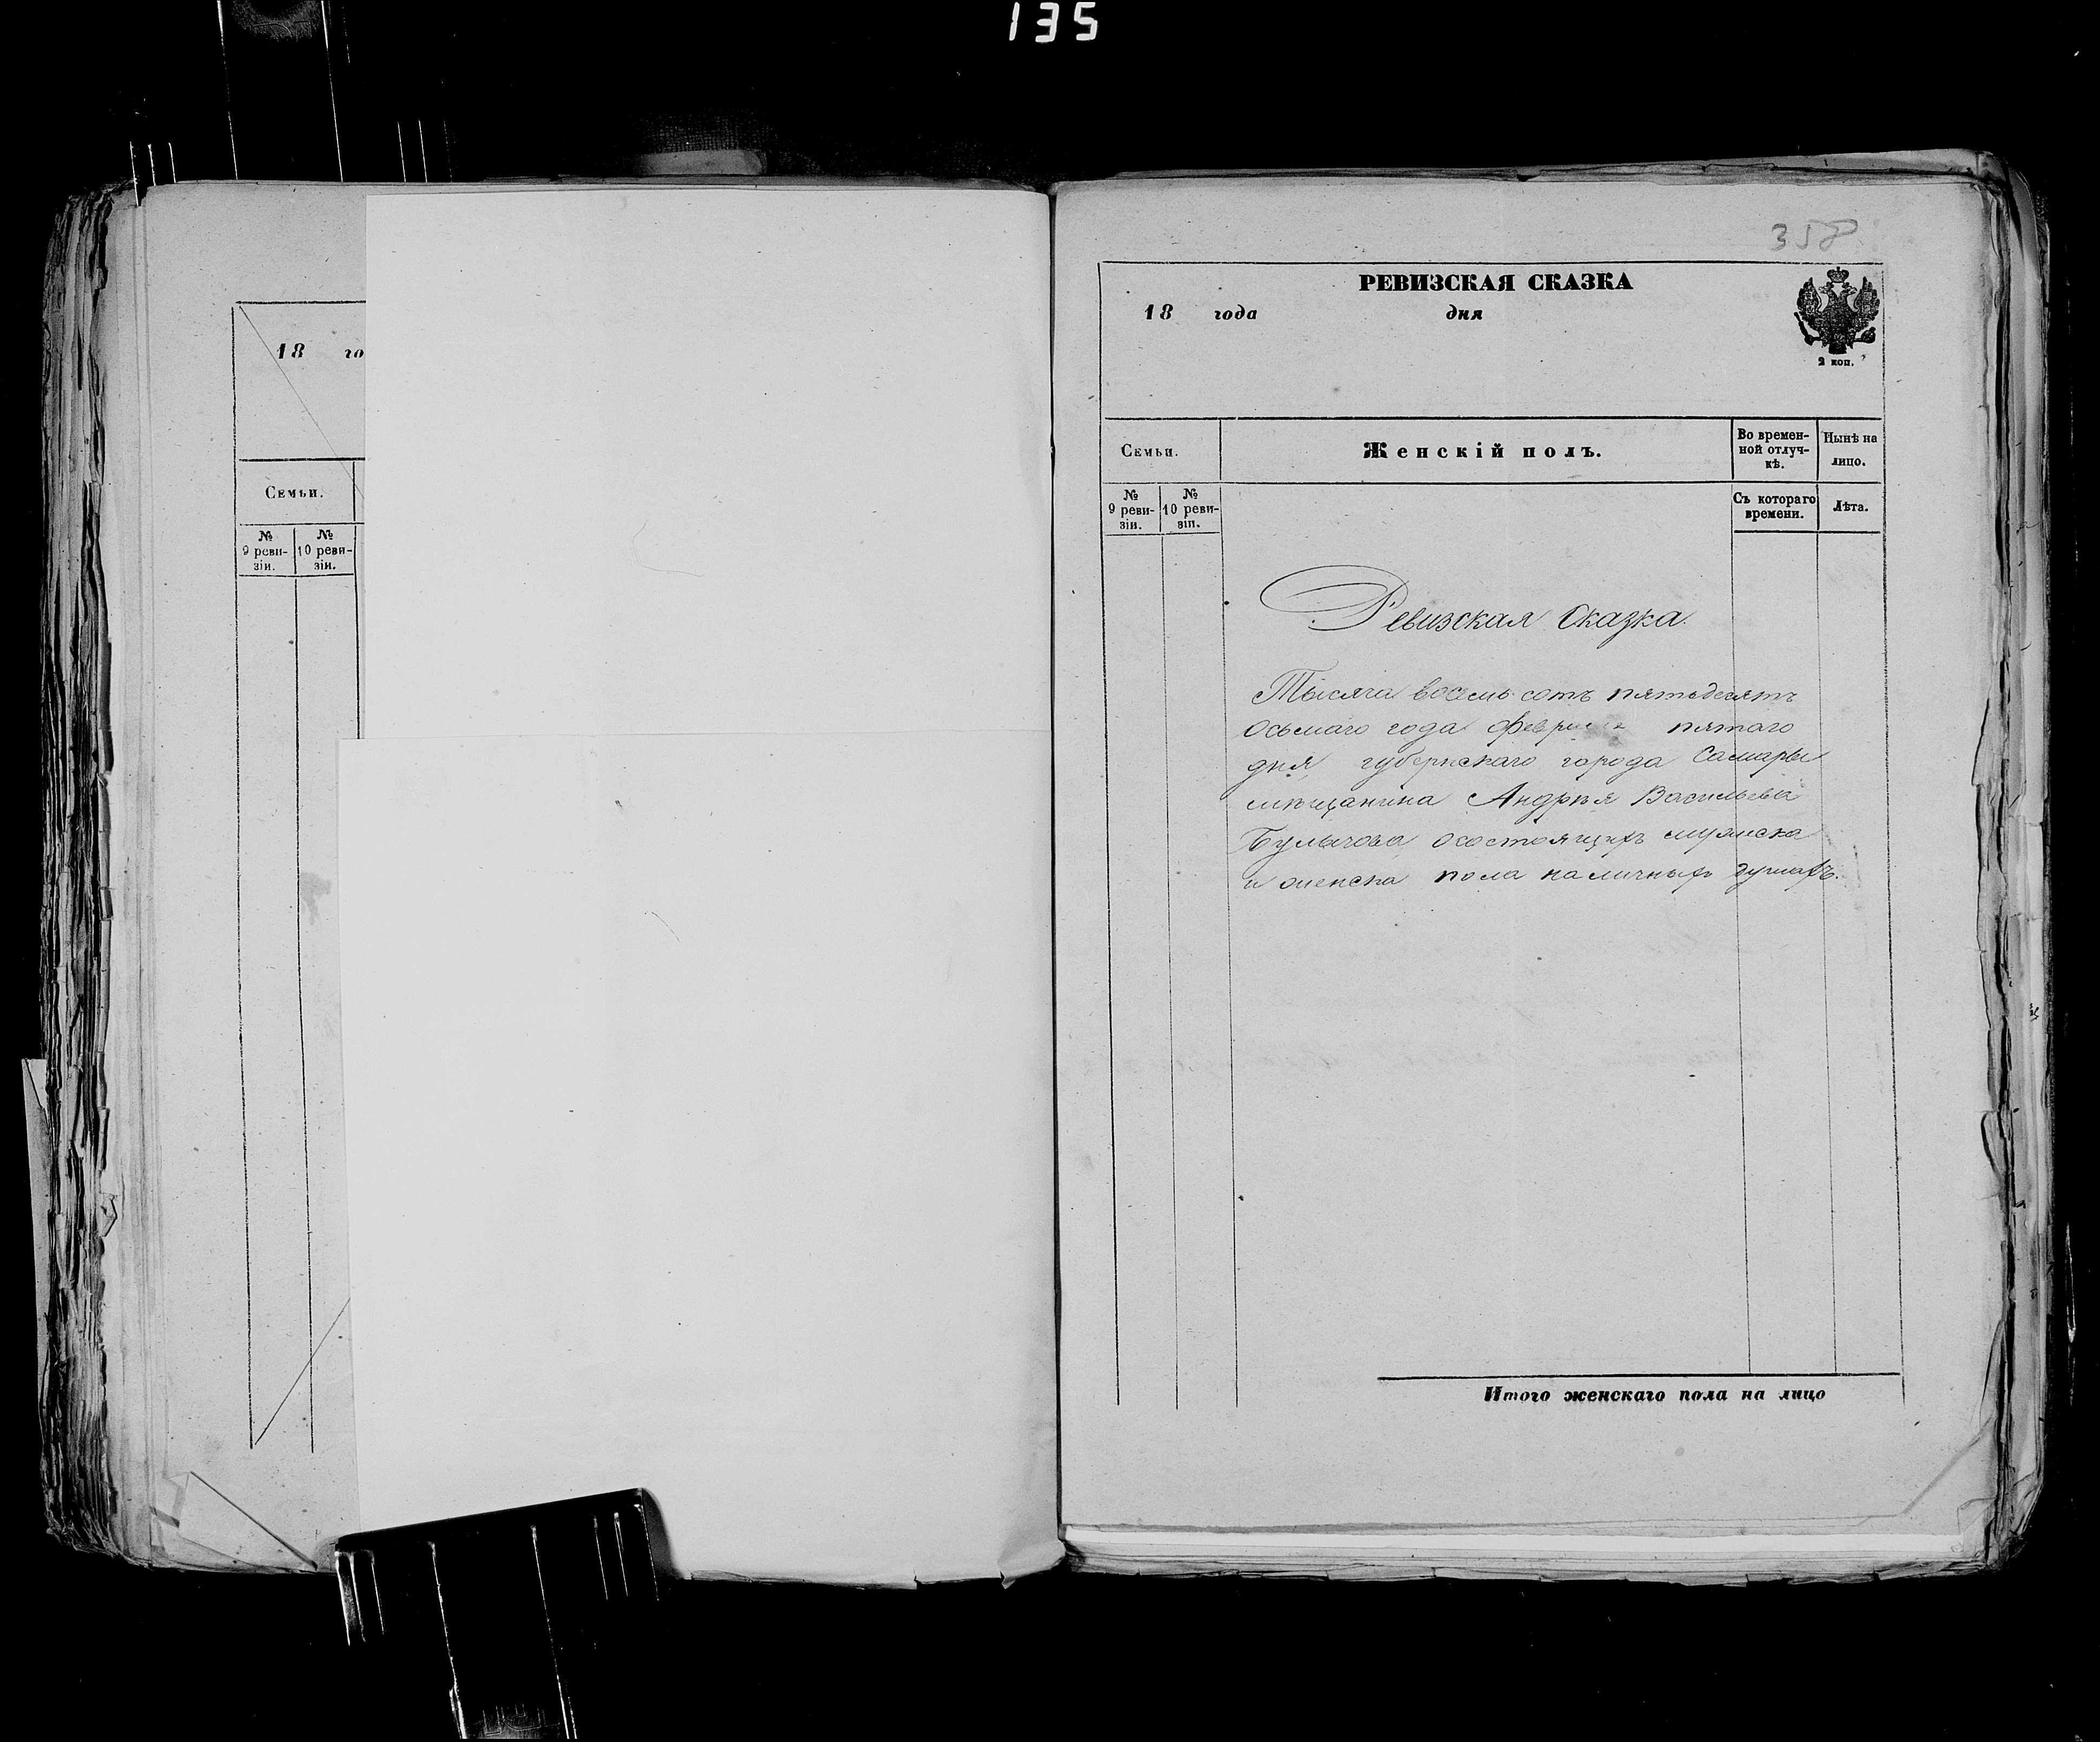 135
18 го
Семьи.
№ 9 реви- зіи.
№ 10 реви- зіи.
358
РЕВИЗСКАЯ СКАЗКА
18 года дня
2 коп.
Семьи.
Женскій полъ.
Во времен- ной отлуч- кѣ.
Нынѣ на лицо.
№ 9 реви- зіи.
№ 10 реви- зіи.
Съ котораго времени.
Лѣта.
Ревизская Сказка.
Тысяча восемь сотъ пятьдесятъ
осьмаго года февраля пятаго
дня, губернскаго города Самары
мѣщанина Андрѣя Васильева
Булычова, осостоящихъ мужска
и женска пола наличныхъ душахъ.
Итого женскаго пола на лицо